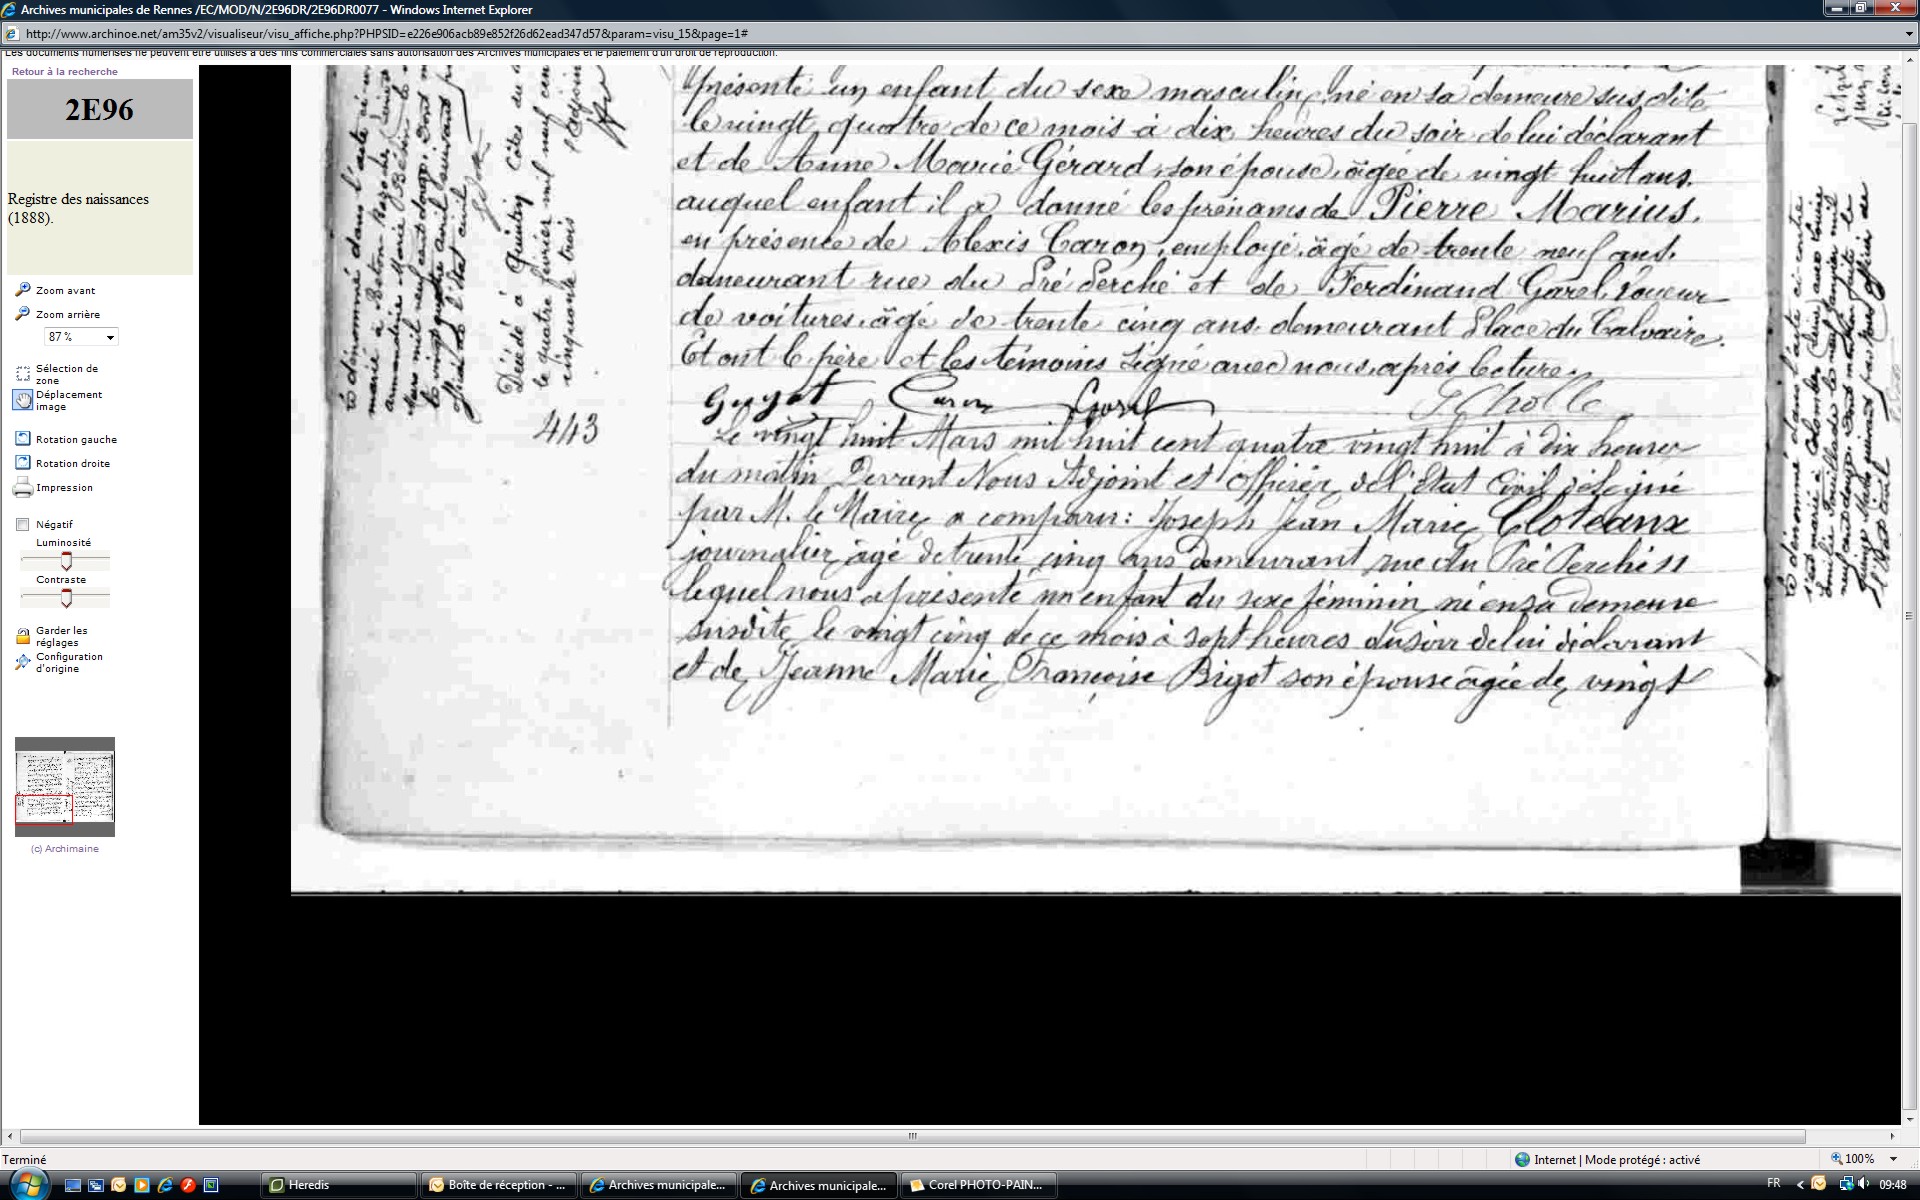 Archives municipales de Rennes /EC/MOD/N/2E96DR/2E96DR0077 - Windows Internet Explorer
http://www.archinoe.net/am35v2/visualiseur/visu_affiche.php?PHPSID=e226e906acb89e852f26d62ead347d57&param=visu_15&page=1#
Les documents numérisés ne peuvent être utilisés à des fins commerciales sans autorisation des Archives municipales et le paiement d'un droit de reproduction.
Retour à la recherche
2E96
Registre des naissances
(1888).
Zoom avant
Zoom arrière
87 %
Sélection de
zone
Déplacement
image
Rotation gauche
Rotation droite
Impression
Négatif
Luminosité
Contraste
Garder les
réglages
Configuration
d'origine
(c) Archimaine
Décédé à Quintin Côtes du
le quatre février mil neuf cent
cinquante trois
présenté un enfant du sexe masculin, né en sa demeure susdite
le vingt quatre de ce mois à dix heures du soir de lui déclarant
et de Anne Marie Gérard, son épouse, âgée de vingt huit ans.
auquel enfant il a donné les prénoms de Pierre Marius.
en présence de Alexis Caron, employé, âgé de trente neuf ans.
demeurant rue du Pré Perché et de Ferdinand Garel, loueur
de voitures, âgé de trente cinq ans. demeurant Place du Calvaire.
Et ont le père et les témoins signé avec nous, après lecture.
Guyot Caron Garel
443
Le vingt huit Mars mil huit cent quatre vingt huit à dix heures
du matin Devant Nous Adjoint et Officier de l'Etat Civil délégué
par M. le Maire, a comparu: Joseph Jean Marie Cloteaux
journalier, âgé de trente cinq ans demeurant rue du Pré Perché 11
lequel nous a présenté un enfant du sexe féminin, né en sa demeure
susdite, le vingt cinq de ce mois à sept heures du soir de lui déclarant
et de Jeanne Marie Françoise Bigot son épouse âgée de vingt
Terminé
Internet | Mode protégé : activé
100%
Heredis
Boîte de réception - ...
Archives municipale...
Archives municipale...
Corel PHOTO-PAIN...
FR
09:48